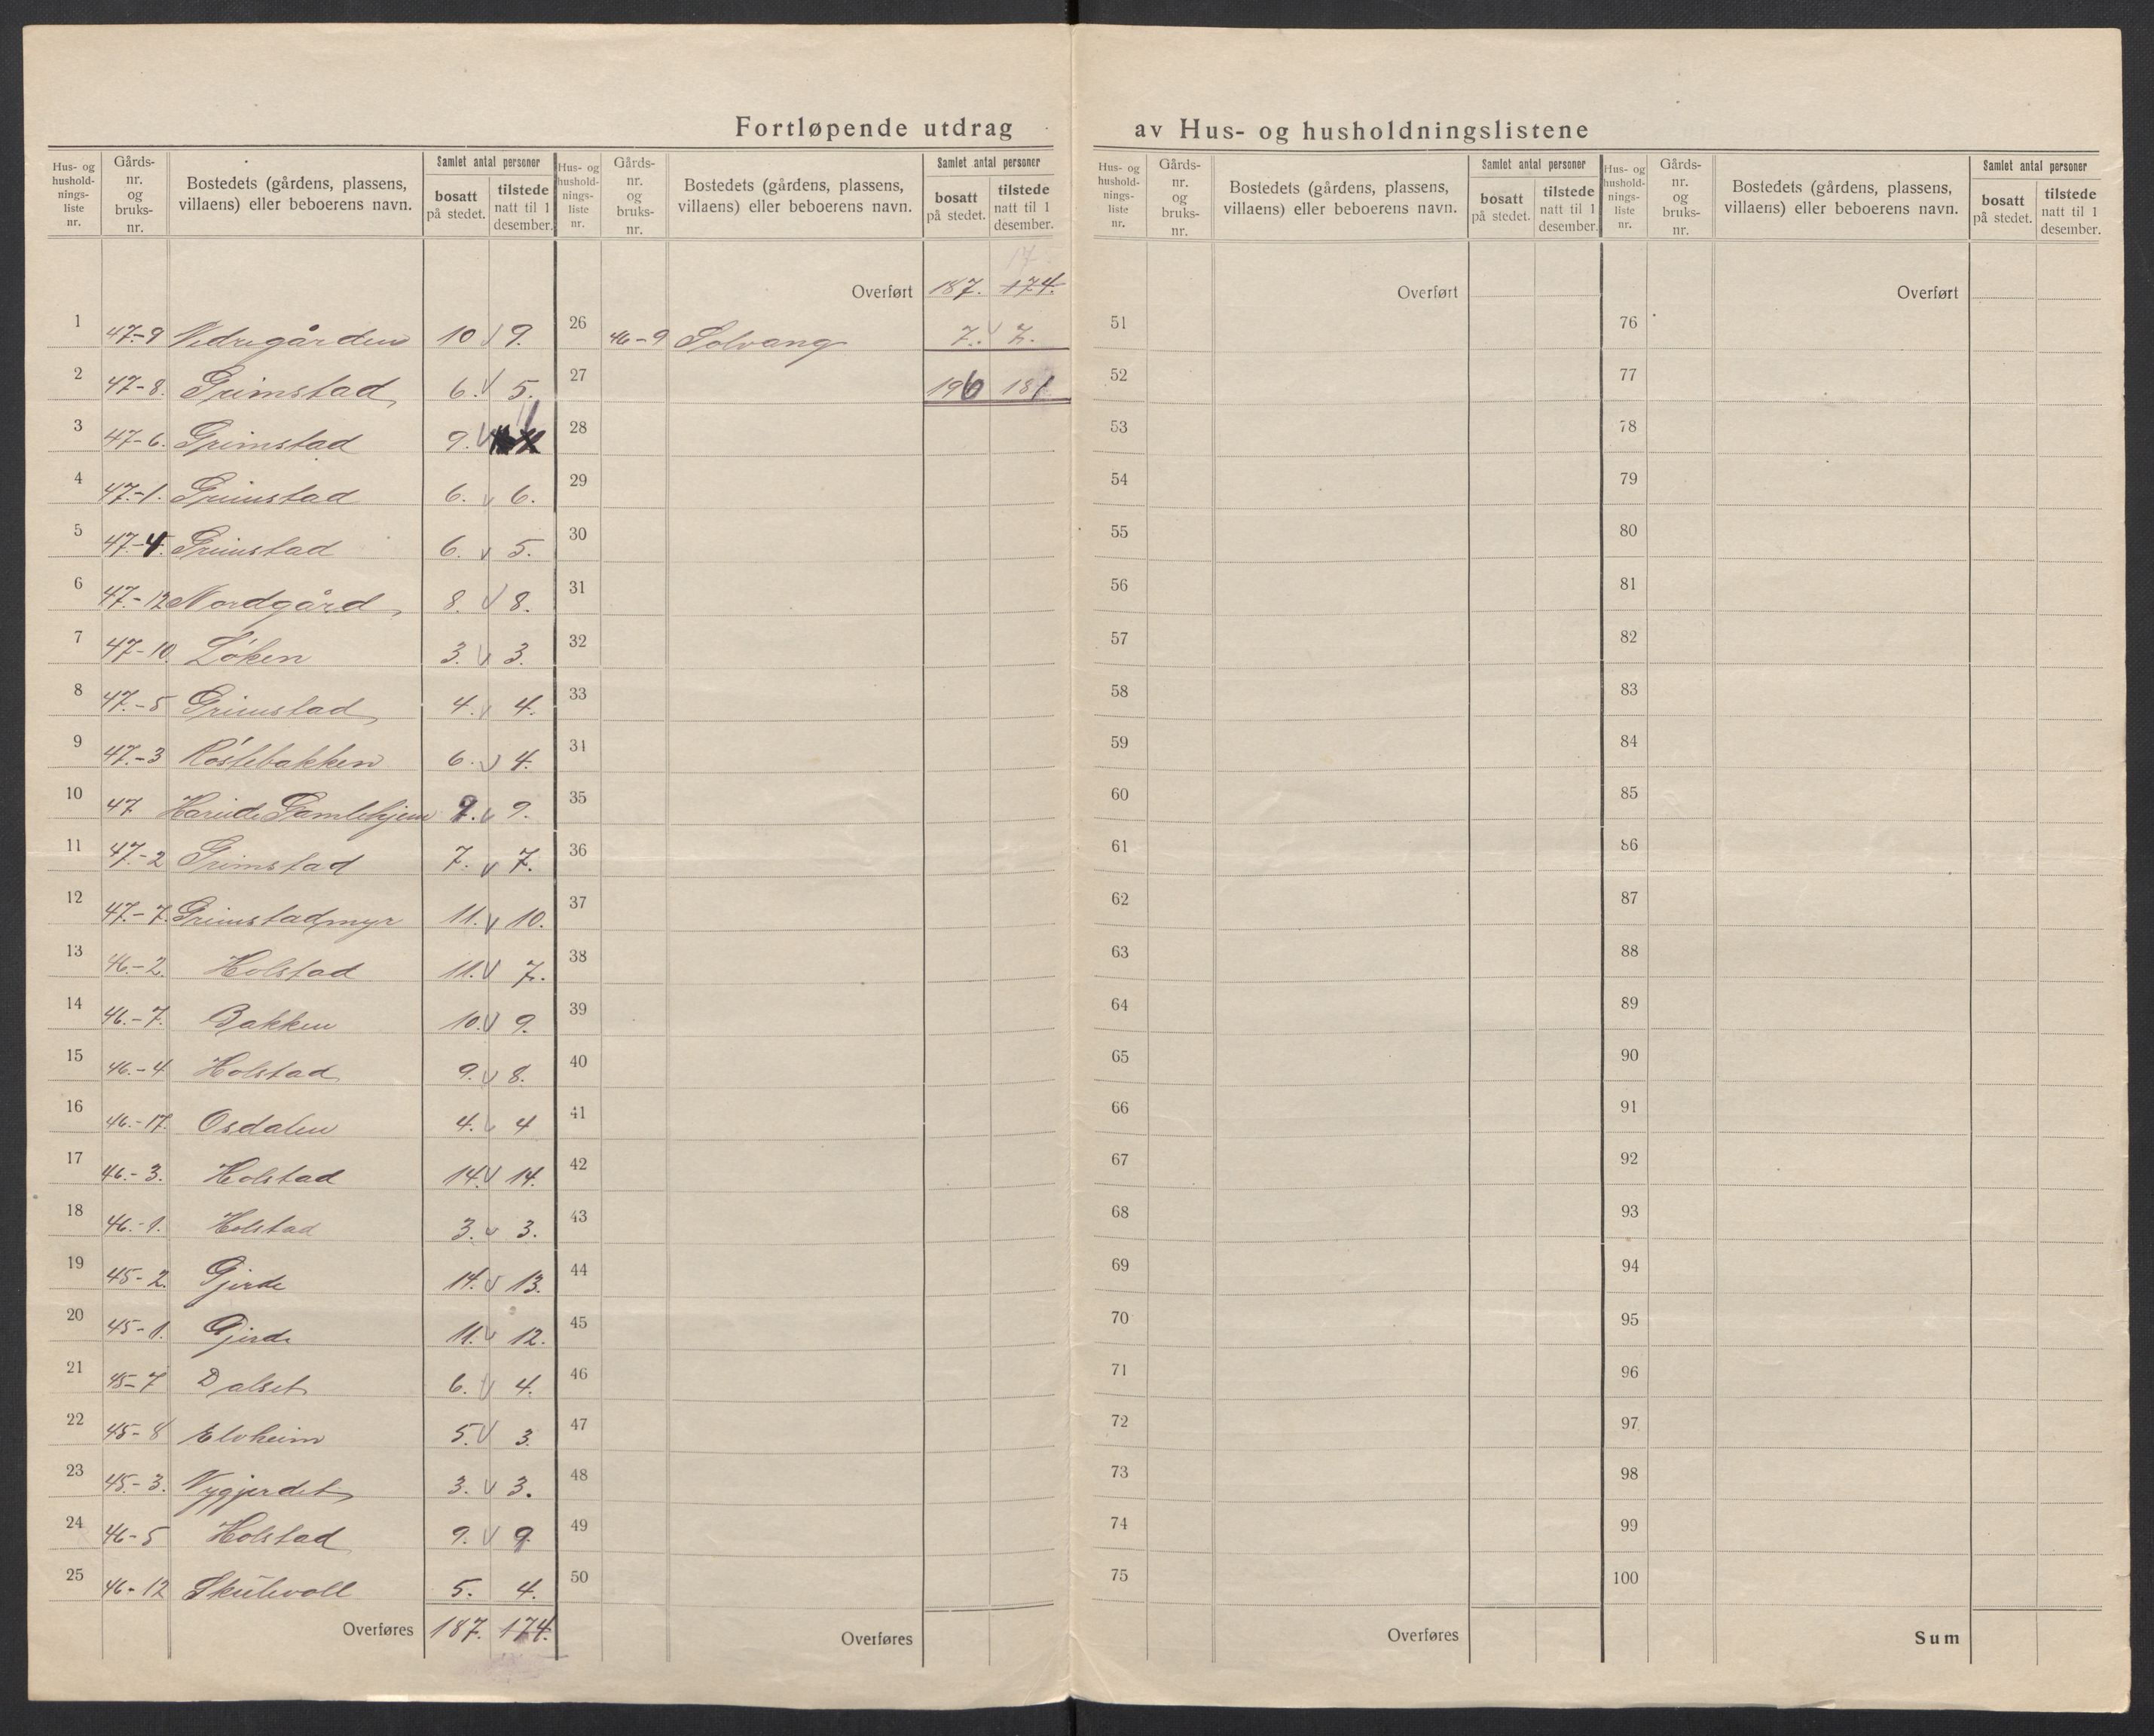 Fortløpende utdrag av Hus- og husholdningslistene
Hus- og hushold- nings- liste nr. Gårds- nr. og bruks- nr. Bostedets (gårdens, plassens, villaens) eller beboerens navn. Samlet antal personer bosatt på stedet. tilstede natt til 1 desember.
1 47-9 Nedregården 10 v 9.
2 47-8. Grimstad 6. v 5.
3 47-6. Grimstad 9. v 11
4 47-1. Grimstad 6. v 6.
5 47-4. Grimstad 6. v 5.
6 47-12 Nordgård 8. v 8.
7 47-10. Løken 3. v 3.
8 47-5 Grimstad 4. v 4.
9 47-3 Røslebakken 6. v 4.
10 47 Hareide Gamlehjem 9. v 9.
11 47-2 Grimstad 7. v 7.
12 47-7. Grimstadmyr 11. v 10.
13 46-2. Holstad 11. v 7.
14 46-7. Bakken 10. v 9.
15 46-4 Holstad 9. v 8.
16 46-17. Osdalen 4. v 4
17 46-3. Holstad 14. v 14.
18 46-1. Holstad 3. v 3.
19 45-2. Gjerde 14. v 13.
20 45-1. Gjerde 11. v 12.
21 45-7 Dalset 6. v 4.
22 45-8 Elvheim 5. v 3.
23 45-3. Nygjerdet 3. v 3.
24 46-5 Holstad 9. v 9.
25 46-12 Skulevoll 5. 4.
Overføres 187. 174.
Hus- og hushold- nings- liste nr. Gårds- nr. og bruks- nr. Bostedets (gårdens, plassens, villaens) eller beboerens navn. Samlet antal personer bosatt på stedet. tilstede natt til 1 desember.
17
Overført 187. 174.
26 46-9 Solvang 7. v 7.
27 196 181
28
29
30
31
32
33
31
35
36
37
38
39
40
41
42
43
44
45
46
47
48
49
50
Overføres
Hus- og hushold- nings- liste nr. Gårds- nr. og bruks- nr. Bostedets (gårdens, plassens, villaens) eller beboerens navn. Samlet antal personer bosatt på stedet. tilstede natt til 1 desember.
Overført
51
52
53
54
55
56
57
58
59
60
61
62
63
64
65
66
67
68
69
70
71
72
73
74
75
Overføres
Hus- og hushold- nings- liste nr. Gårds- nr. og bruks- nr. Bostedets (gårdens, plassens, villaens) eller beboerens navn. Samlet antal personer bosatt på stedet. tilstede natt til 1 desember.
Overført
76
77
78
79
80
81
82
83
84
85
86
87
88
89
90
91
92
93
94
95
96
97
98
99
100
Sum